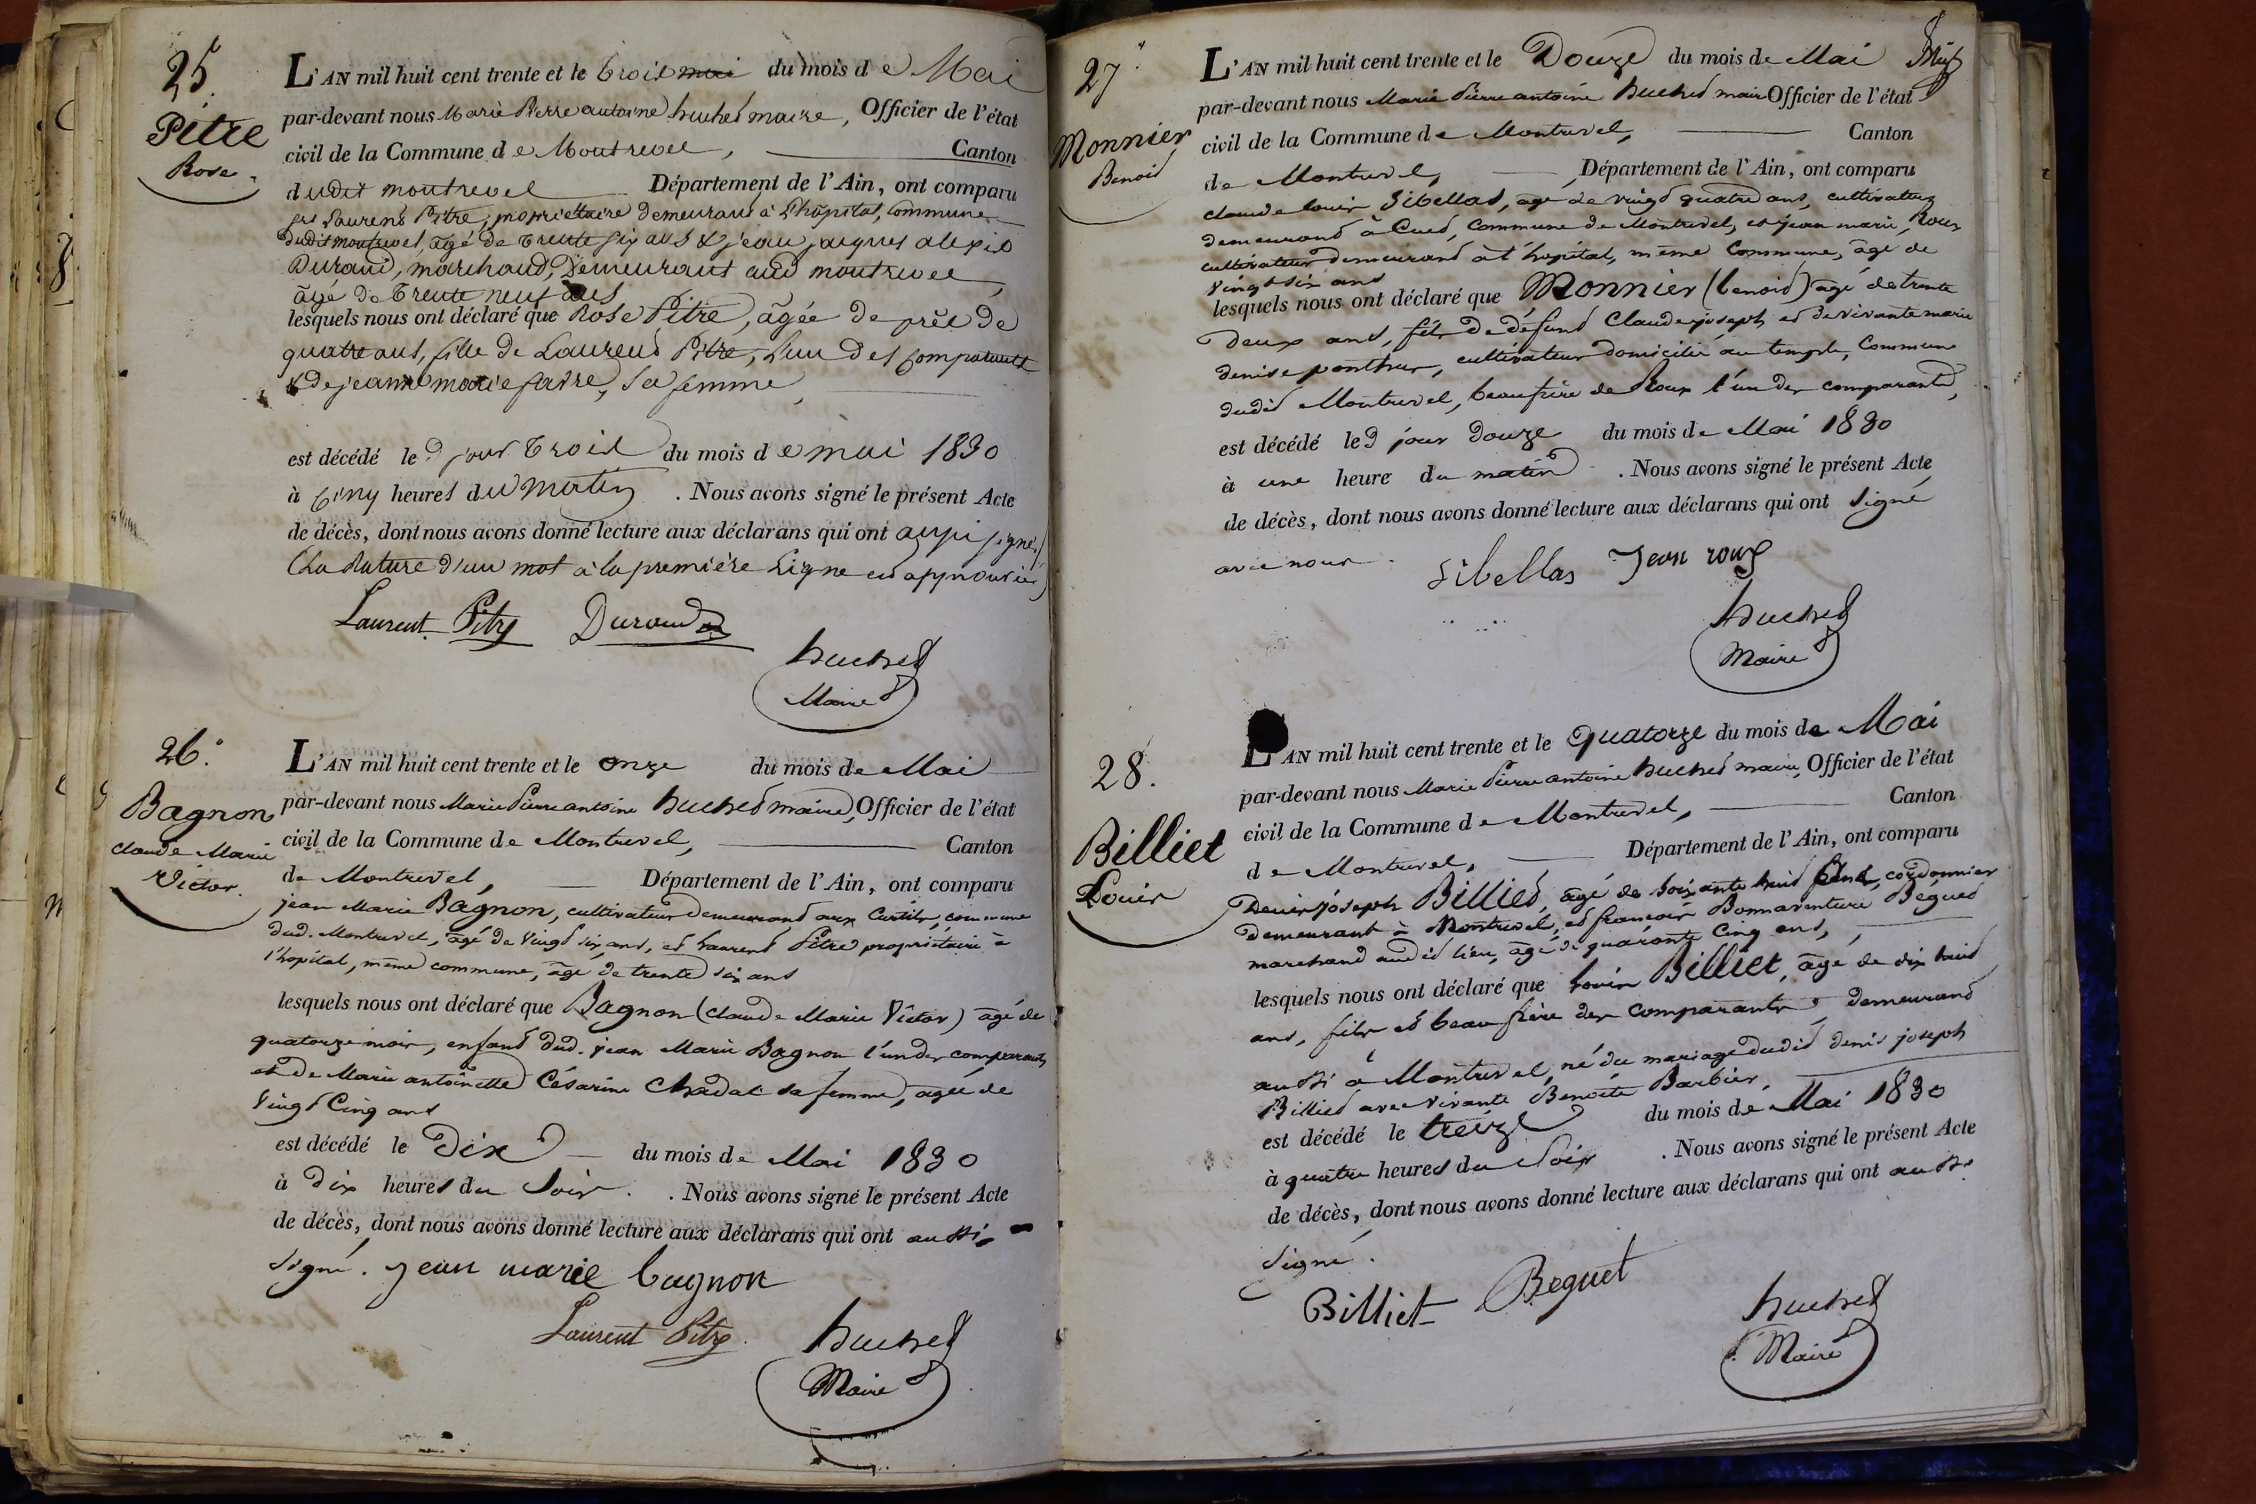 25.
Pitre
Rose.
L'AN mil huit cent trente et le trois mai du mois de Mai
par-devant nous Marie Pierre antoine huchet maire, Officier de l'état
civil de la Commune de Montrevel, Canton
dudit montrevel Département de l'Ain, ont comparu
Laurent Pitre, propriettaire demeurant à l'hôpital, Commune
dudit montrevel, âgé de trente six ans & jean jacques alexis
Durand, marchand, Demeurant aud montrevel,
âgé de trente neuf ans
lesquels nous ont déclaré que Rose Pitre, âgée de près de
quatre ans, fille de Laurent Pitre, l'un des comparants
& de jeanne marie favre, sa femme,
est décédé le d jour trois du mois de mai 1830
à cinq heures du matin. Nous avons signé le présent Acte
de décès, dont nous avons donné lecture aux déclarans qui ont aussi signé,
(La Rature d'un mot à la première Ligne est approuvée)
Laurent Pitre Durand
huchet
Maire
26.
Bagnon
claude Marie
Victor.
L'AN mil huit cent trente et le onze du mois de Mai
par-devant nous Marie Pierre antoine huchet maire, Officier de l'état
civil de la Commune de Montrevel, Canton
de Montrevel, Département de l'Ain, ont comparu
jean Marie Bagnon, cultivateur demeurant aux Curtils, commune
dud. Montrevel, âgé de vingt six ans, et Laurent Pitre propriétaire à
l'hopital, même commune, âgé de trente six ans
lesquels nous ont déclaré que Bagnon (claude Marie Victor) âgé de
quatorze mois, enfant dud. jean Marie Bagnon l'un des comparants
et de Marie antoinette Césarine Chadal sa femme, agée de
vingt Cinq ans
est décédé le Dix du mois de Mai 1830
à dix heures du soir. Nous avons signé le présent Acte
de décès, dont nous avons donné lecture aux déclarans qui ont aussi
signé. jean marie bagnon
Laurent Pitre huchet
Maire
27.
Monnier
Benoit
L'AN mil huit cent trente et le Douze du mois de Mai
par-devant nous Marie Pierre antoine huchet maire Officier de l'état
civil de la Commune de Montrevel, Canton
de Montrevel, Département de l'Ain, ont comparu
claude louis Sibellas, âgé de vingt quatre ans, cultivateur
demeurant à Cuet, commune de Montrevel, et jean marie Roux
cultivateur demeurant à l'hopital, même Commune, âgé de
vingt six ans
lesquels nous ont déclaré que Monnier (benoit) âgé de trente
deux ans, fils de défunt Claude joseph et de vivante marie
denise ponthus, cultivateur domicilié au temple, Commune
dudit Montrevel, beau frère de Roux l'un des comparants,
est décédé le d jour douze du mois de Mai 1830
à une heure du matin. Nous avons signé le présent Acte
de décès, dont nous avons donné lecture aux déclarans qui ont signé
avec nous.
Sibellas Jean roux
huchet
Maire
28.
Billiet
Louis
L'AN mil huit cent trente et le quatorze du mois de Mai
par-devant nous Marie Pierre antoine huchet maire, Officier de l'état
civil de la Commune de Montrevel, Canton
de Montrevel, Département de l'Ain, ont comparu
Denis joseph Billiet, âgé de soixante huit ans, cordonnier
demeurant à Montrevel, et françois Bonnaventure Béguet
marchand audit lieu, âgé de quarante Cinq ans,
lesquels nous ont déclaré que Louis Billiet, âgé de dix huit
ans, fils et beau frère des comparants, demeurant
aussi à Montrevel, né du mariage dudit denis joseph
Billiet avec vivante Benoite Barbier,
est décédé le treize du mois de Mai 1830
à quatre heures du soir. Nous avons signé le présent Acte
de décès, dont nous avons donné lecture aux déclarans qui ont aussi
signé.
Billiet Beguet
huchet
Maire